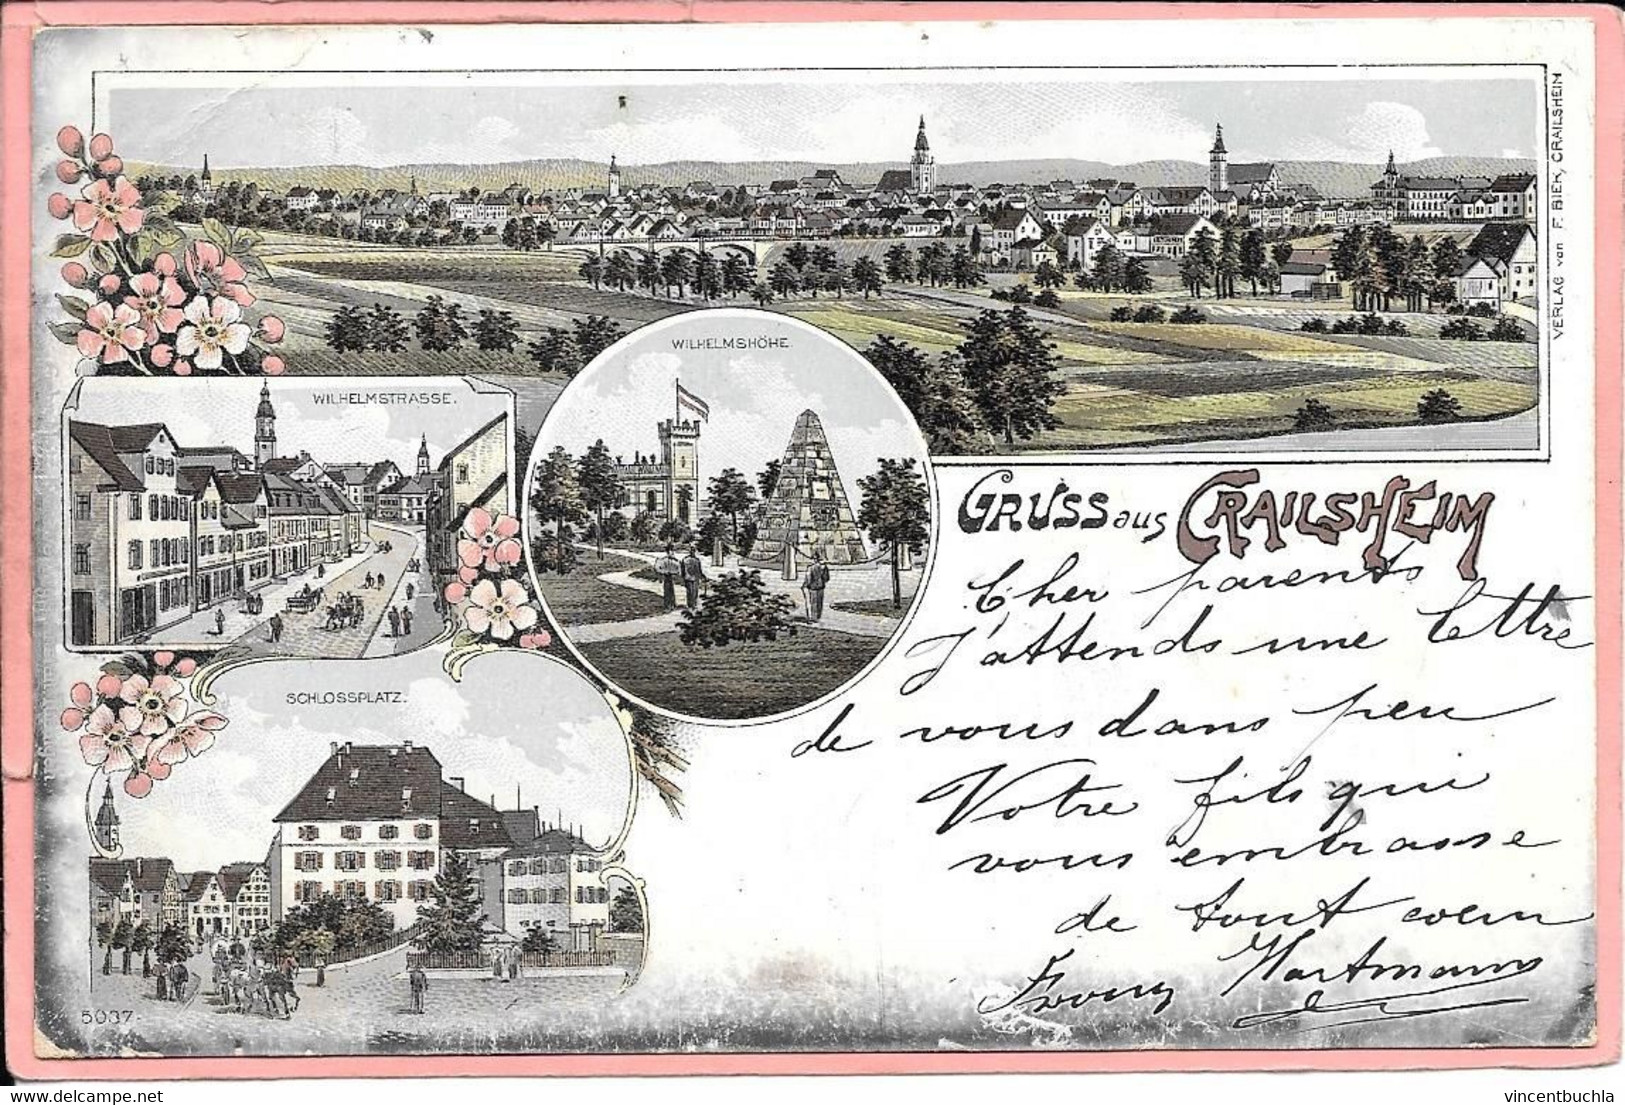 VERLAG von F. BIEK, CRAILSHEIM
WILHELMSHÖHE
WILHELMSTRASSE.
GRUSS aus CRAILSHEIM
Cher parents
J'attends une lettre
de vous dans peu
Votre fils qui
vous embrasse
de tout coeur
Hartmann
SCHLOSSPLATZ.
5037
vincentbuchla